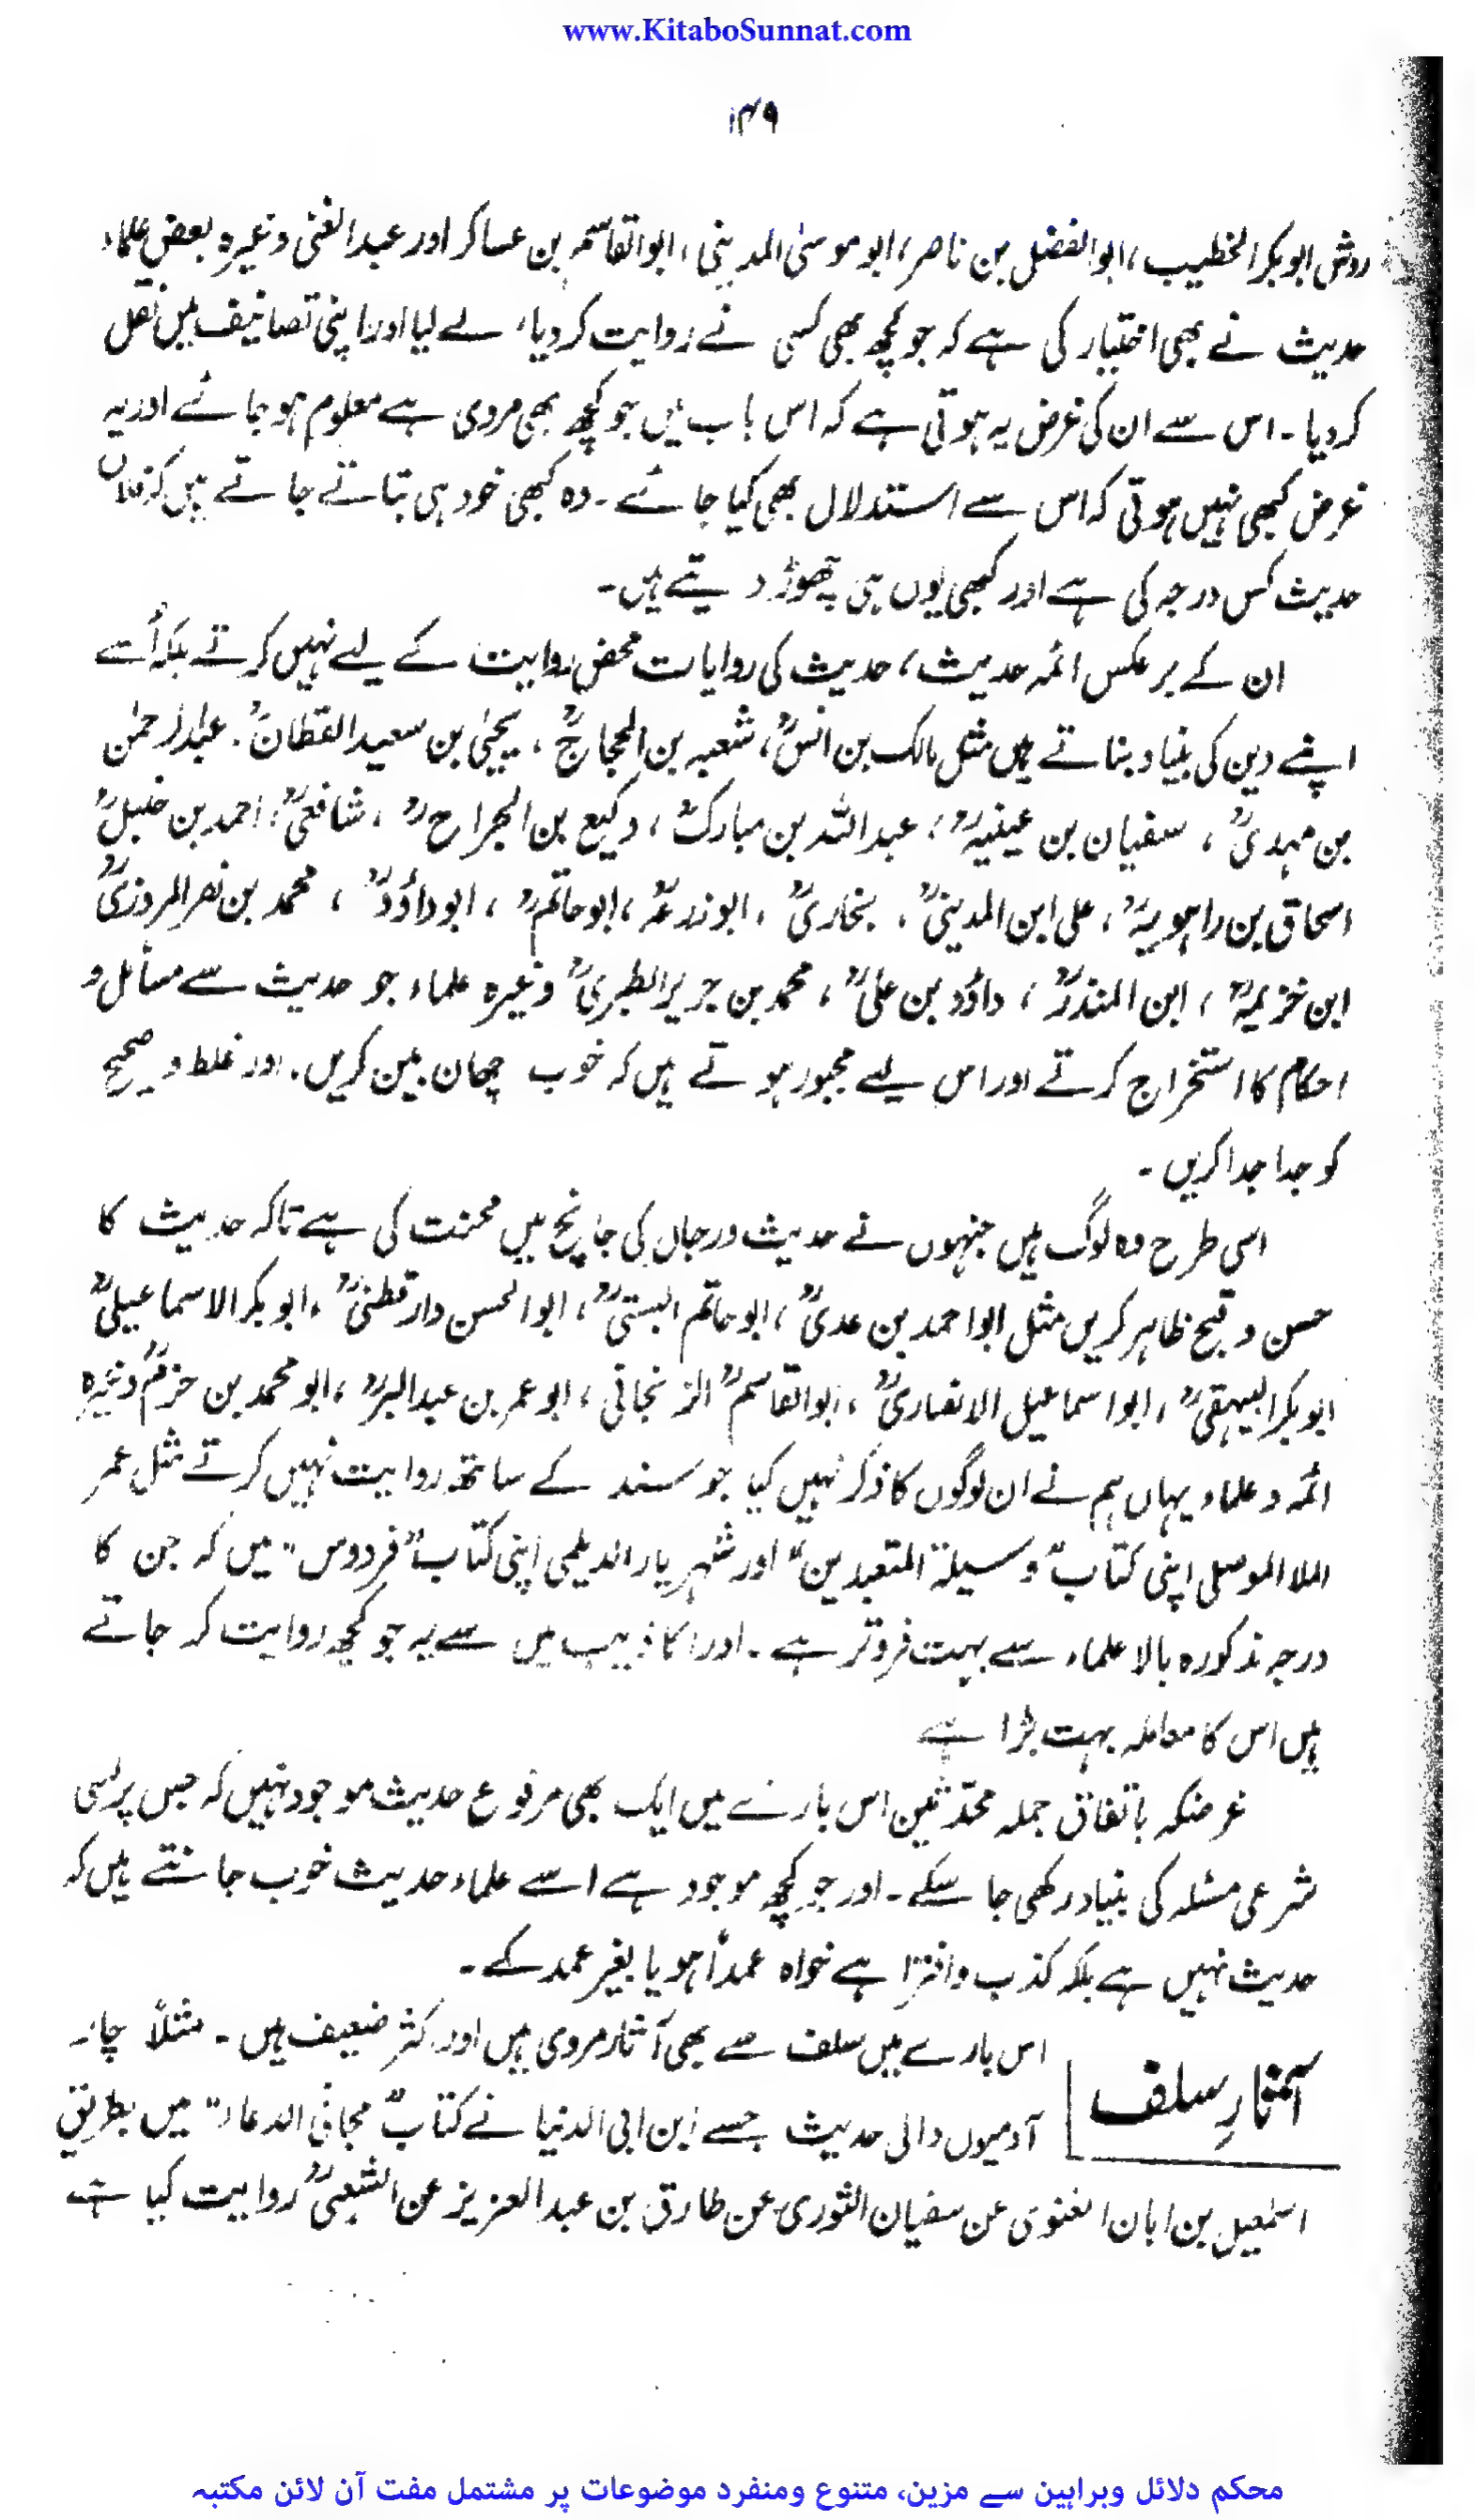 www.KitaboSunnat.com
۱۴۹
روش ابوبکر الخطیب، ابوالفضل بن ناصر، ابو موسیٰ المدینی، ابوالقاسم بن عساکر اور عبدالغنی وغیرہ بعض علماء
حدیث نے بھی اختیار کی ہے کہ جو کچھ بھی کسی نے روایت کر دیا، لے لیا اور اپنی تصانیف میں نقل
کر دیا۔ اس سے ان کی غرض یہ ہوتی ہے کہ اس باب میں جو کچھ بھی مروی ہے معلوم ہو جائے اور یہ
غرض کبھی نہیں ہوتی کہ اس سے استدلال بھی کیا جائے۔ وہ کبھی خود ہی بتاتے جاتے ہیں کہ فلاں
حدیث کس درجہ کی ہے اور کبھی یوں ہی چھوڑ دیتے ہیں۔
ان کے برعکس ائمہ حدیث، حدیث کی روایات محض روایت کے لیے نہیں کرتے بلکہ اُسے
اپنے دین کی بنیاد بناتے ہیں مثل مالک بن انسؒ، شعبہ بن الحجاجؒ، یحییٰ بن سعید القطانؒ، عبدالرحمٰن
بن مہدیؒ، سفیان بن عیینہؒ، عبداللہ بن مبارکؒ، وکیع بن الجراحؒ، شافعیؒ، احمد بن حنبلؒ
اسحاق بن راہویہؒ، علی ابن المدینیؒ، بخاریؒ، ابوزرعہؒ، ابوحاتمؒ، ابوداؤدؒ، محمد بن نصر المروزیؒ
ابن خزیمہؒ، ابن المنذرؒ، داؤد بن علیؒ، محمد بن جریر الطبریؒ وغیرہ علماء جو حدیث سے مسائل و
احکام کا استخراج کرتے اور اس لیے مجبور ہوتے ہیں کہ خوب چھان بین کریں، اور غلط و صحیح
کو جدا جدا کریں۔
اسی طرح وہ لوگ ہیں جنہوں نے حدیث و رجال کی جانچ میں محنت کی ہے تاکہ حدیث کا
حسن و قبح ظاہر کریں مثل ابواحمد بن عدیؒ، ابوحاتم البستیؒ، ابوالحسن دارقطنیؒ، ابوبکر الاسماعیلیؒ
ابوبکر البیہقیؒ، ابو اسماعیل الانصاریؒ، ابوالقاسمؒ الزنجانی، ابو عمر بن عبدالبرؒ، ابو محمد بن حزمؒ وغیرہ
ائمہ و علماء یہاں ہم نے ان لوگوں کا ذکر نہیں کیا جو سند کے ساتھ روایت نہیں کرتے مثل عمر
الملا الموصلی اپنی کتاب "وسیلۃ المتعبدین" اور شہریار الدیلمی اپنی کتاب "فردوس" میں کہ جن کا
درجہ مذکورہ بالا علماء سے بہت فروتر ہے۔ اور اکاذیب میں سے یہ جو کچھ روایت کر جاتے
ہیں اس کا معاملہ بہت بڑا ہے
غرضکہ باتفاق جملہ محدثین اس بارے میں ایک بھی مرفوع حدیث موجود نہیں کہ جس پر کسی
شرعی مسئلہ کی بنیاد رکھی جا سکے۔ اور جو کچھ موجود ہے اسے علماء حدیث خوب جانتے ہیں کہ
حدیث نہیں ہے بلکہ کذب و افترا ہے خواہ عمداً ہو یا بغیر عمد کے۔
آثارِ سلف
اس بارے میں سلف سے بھی آثار مروی ہیں اور اکثر ضعیف ہیں۔ مثلاً چار
آدمیوں والی حدیث جسے ابن ابی الدنیا نے کتاب "مجابی الدعاء" میں بطریق
اسمٰعیل بن ابان الغنوی عن سفیان الثوری عن طارق بن عبدالعزیز عن الشعبیؒ روایت کیا ہے
محکم دلائل وبراہین سے مزین، متنوع ومنفرد موضوعات پر مشتمل مفت آن لائن مکتبہ